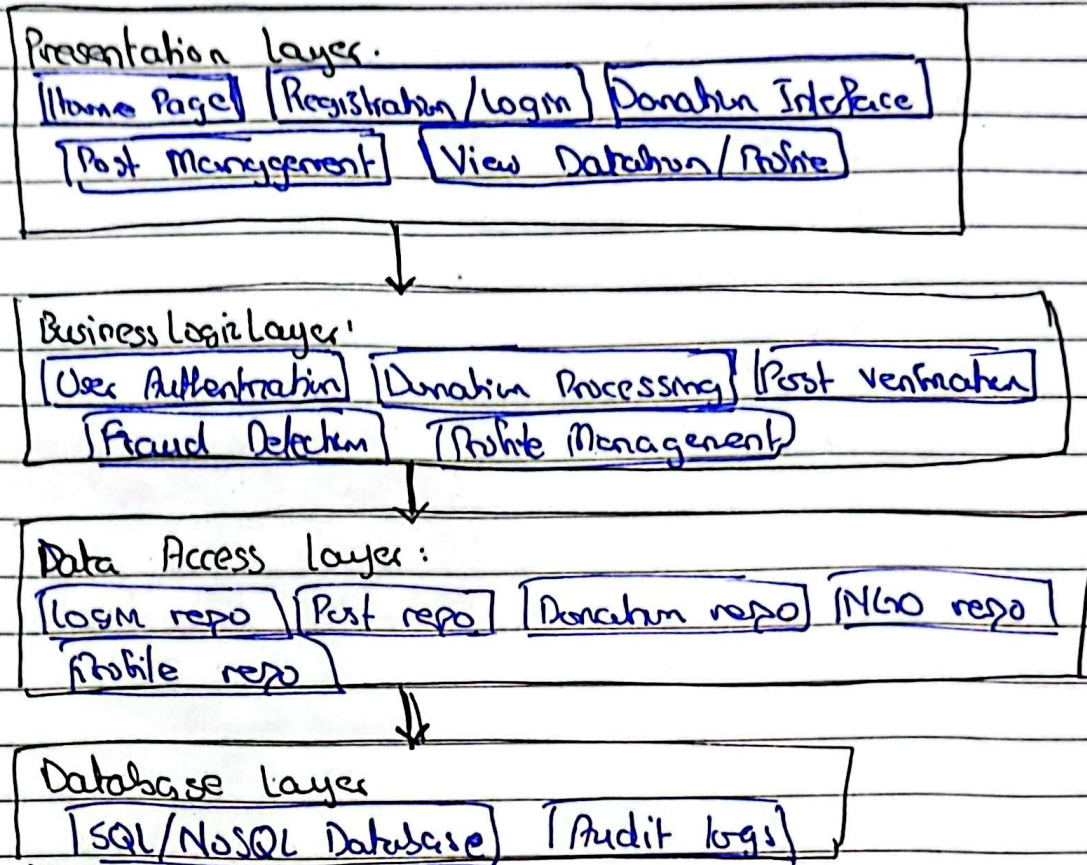 Presentation Layer.
Home Page Registration/Login Donation Interface
Post Management View Datation/Profile
Business Logic Layer:
User Authentication Donation Processing Post Verification
Fraud Detection Profile Management
Data Access Layer:
Login repo Post repo Donation repo NGO repo
Profile repo
Database Layer
SQL/NoSQL Database Audit logs